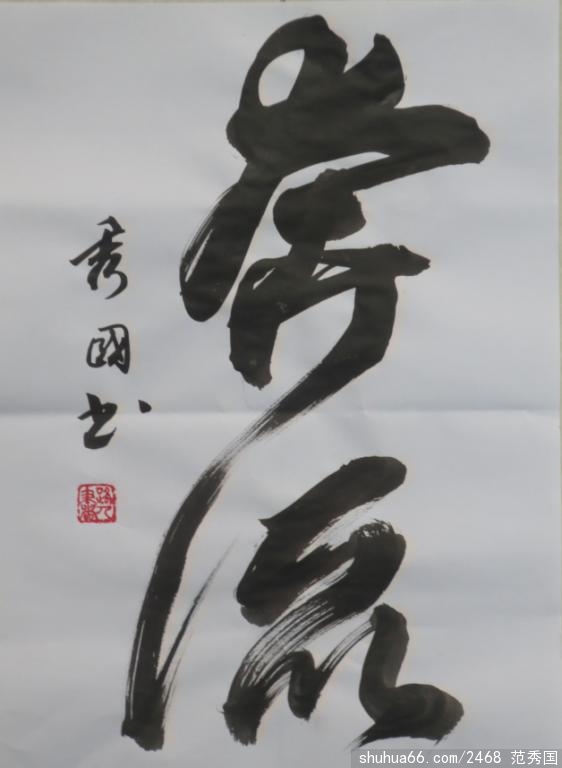 奔流
秀國书
shuhua66.com/2468 范秀国